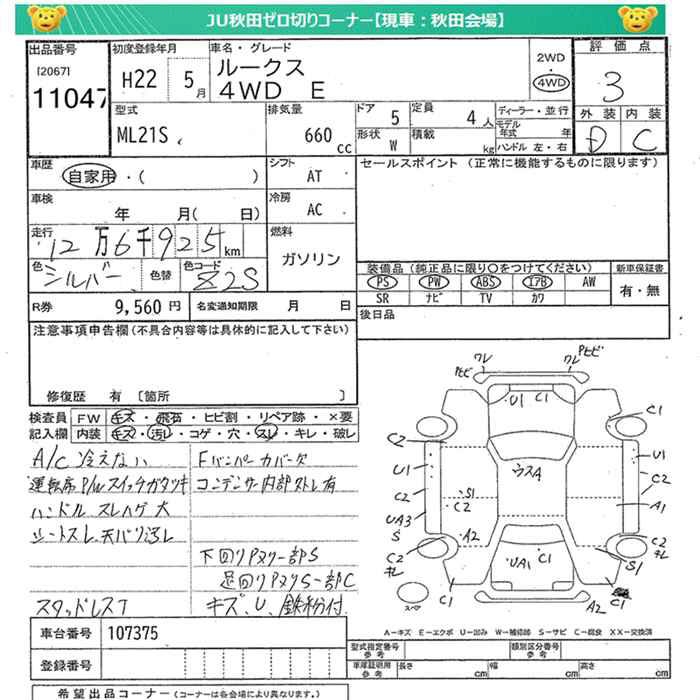 JU秋田ゼロ切りコーナー【現車：秋田会場】
出品番号 初度登録年月 車名・グレード 評価点
[2067] 11047
H22 5月
ルークス
4WD E
2WD
4WD
3
外装 内装
D C
型式 排気量 ドア 定員 ディーラー・並行
ML21S 660cc 5 4人 モデル年式 年
形状 W 積載 kg ハンドル 左・右
車歴 シフト セールスポイント (正常に機能するものに限ります)
自家用・( ) AT
車検 冷房
年 月( 日) AC
走行 燃料
12万6千925km ガソリン
色 色替 色コード
シルバー Z2S
装備品 (純正品に限り○をつけてください) 新車保証書
PS PW ABS エアB AW 有・無
SR ナビ TV カワ
R券 9,560円 名変通知期限 月 日 後日品
注意事項申告欄(不具合内容等は具体的に記入して下さい)
修復歴 有 〔箇所 〕
検査員 FW キズ・飛石・ヒビ割・リペア跡・×要
記入欄 内装 キズ・汚レ・コゲ・穴・スレ・キレ・破レ
A/C冷えない Fバンパーカバー欠
運転席P/Wスイッチガタツキ コンデンサー内部ストレ有
ハンドルスレハゲ大
シートスレ 天バリ汚レ
下回りPヌリ一部S
足回りPヌリS一部C
スタッドレスT キズ、U、鉄粉付
ワレ ワレ Pヒビ
Pヒビ
U1 C1
C1
C2
U1 U1
ウスA
C2 C2
S1
C2
UA3 A1
S
A2
C2 C2
キレ キレ
UA1 C1
S1
C1 A2 C1
スペア
A－キズ E－エクボ U－凹み W－補修跡 S－サビ C－腐食 XX－交換済
車台番号 107375
登録番号
型式指定番号 参考 類別区分番号 参考
車庫証明用 参考 長さ cm 幅 cm 高さ cm
希望出品コーナー (コーナーは各会場により異なります。)